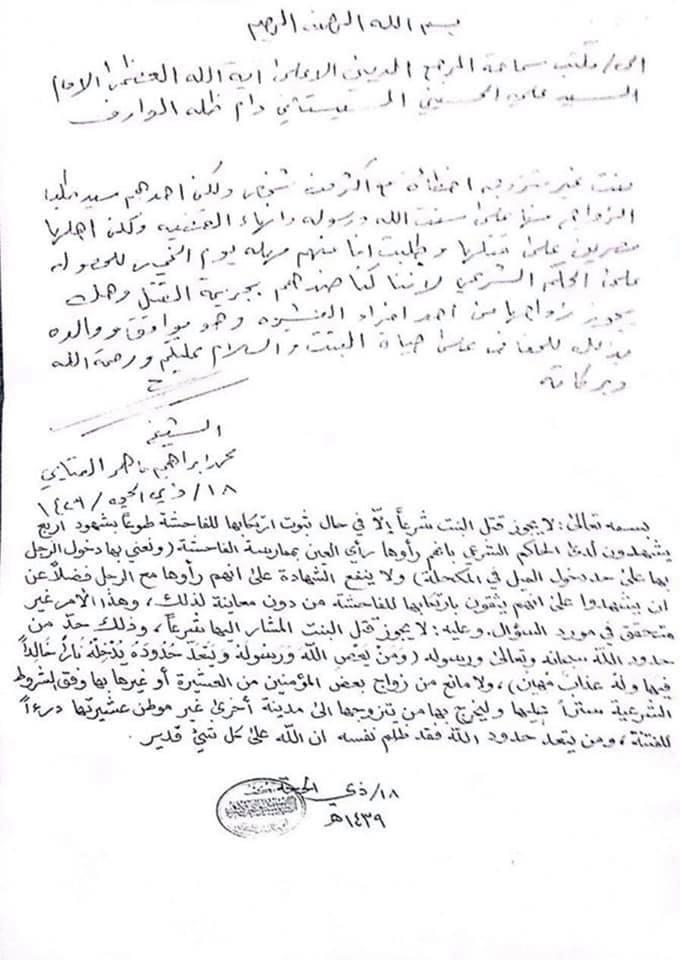 بسم الله الرحمن الرحيم
الى/ مكتب سماحة المرجع الديني الاعلى اية الله العظمى الامام
السيد علي الحسيني السيستاني دام ظله الوارف
بنت غير متزوجه اخطائة مع اكثر من شخص ولكن احدهم سيد طلب
الزواج منها على سنت الله ورسوله وانهاء القضيه ولكن اهلها
مصرين على قتلها وطلبت انا منهم مهله يوم الخميس للحصول
على الحكم الشرعي لاننا كنا ضدهم بجريمة القتل وهل
يجوز زواجها من احد افراد العشيره وهو موافق ووالده
كذلك للحفاض على حياة البنت والسلام عليكم ورحمة الله
وبركاته
الشيخ
محمد ابراهيم
١٨/ ذي الحجه/
بسمه تعالى: لا يجوز قتل البنت شرعاً إلّا في حال ثبوت ارتكابها للفاحشة طوعاً بشهود اربع
يشهدون لدى الحاكم الشرعي بانهم رأوها رأي العين بممارسة الفاحشة (ونعني بها دخول الرجل
بها على حد دخول الميل في المكحلة) ولا ينفع الشهادة على انهم رأوها مع الرجل فضلاً عن
ان يشهدوا على انهم يثقون بارتكابها للفاحشة من دون معاينة لذلك، وهذا الامر غير
متحقق في مورد السؤال. وعليه: لا يجوز قتل البنت المشار اليها شرعاً، وذلك حدّ من
حدود الله سبحانه وتعالى ورسوله (وَمَنْ يَعْصِ اللّهَ وَرَسُولَهُ وَيَتَعَدَّ حُدُودَهُ يُدْخِلْهُ نَاراً خَالِداً
فِيهَا وَلَهُ عَذَابٌ مُهِينٌ)، ولا مانع من زواج بعض المؤمنين من العشيرة أو غيرها بها وفق الشروط
الشرعية ستراً عليها وليخرج بها من يتزوجها الى مدينة أخرى غير موطن عشيرتها درءاً
للفتنة، ومن يتعد حدود الله فقد ظلم نفسه ان الله على كل شيء قدير.
١٨/ ذي الحجة
١٤٣٩هـ